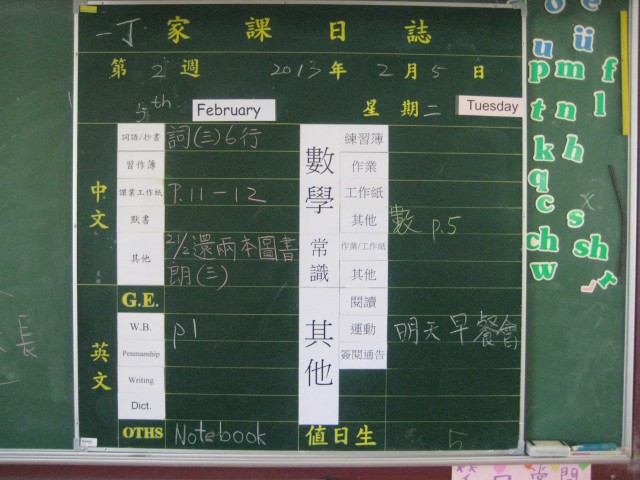 一丁 家課日誌
第 2 週 2013 年 2 月 5 日
5th February 星期二 Tuesday
中文
詞語/抄書 詞(三)6行
習作簿
課業工作紙 P.11-12
默書
其他 21/2還兩本圖書
朗(三)
G.E.
英文
W.B. p1
Penmanship
Writing
Dict.
OTHS Notebook
數學
練習簿
作業
工作紙
其他 數 p.5
常識
作業/工作紙
其他
其他
閱讀
運動 明天早餐會
簽閱通告
值日生 5
o e
u ü
p m f
t n l
k h
q
c s
ch sh
w r
長